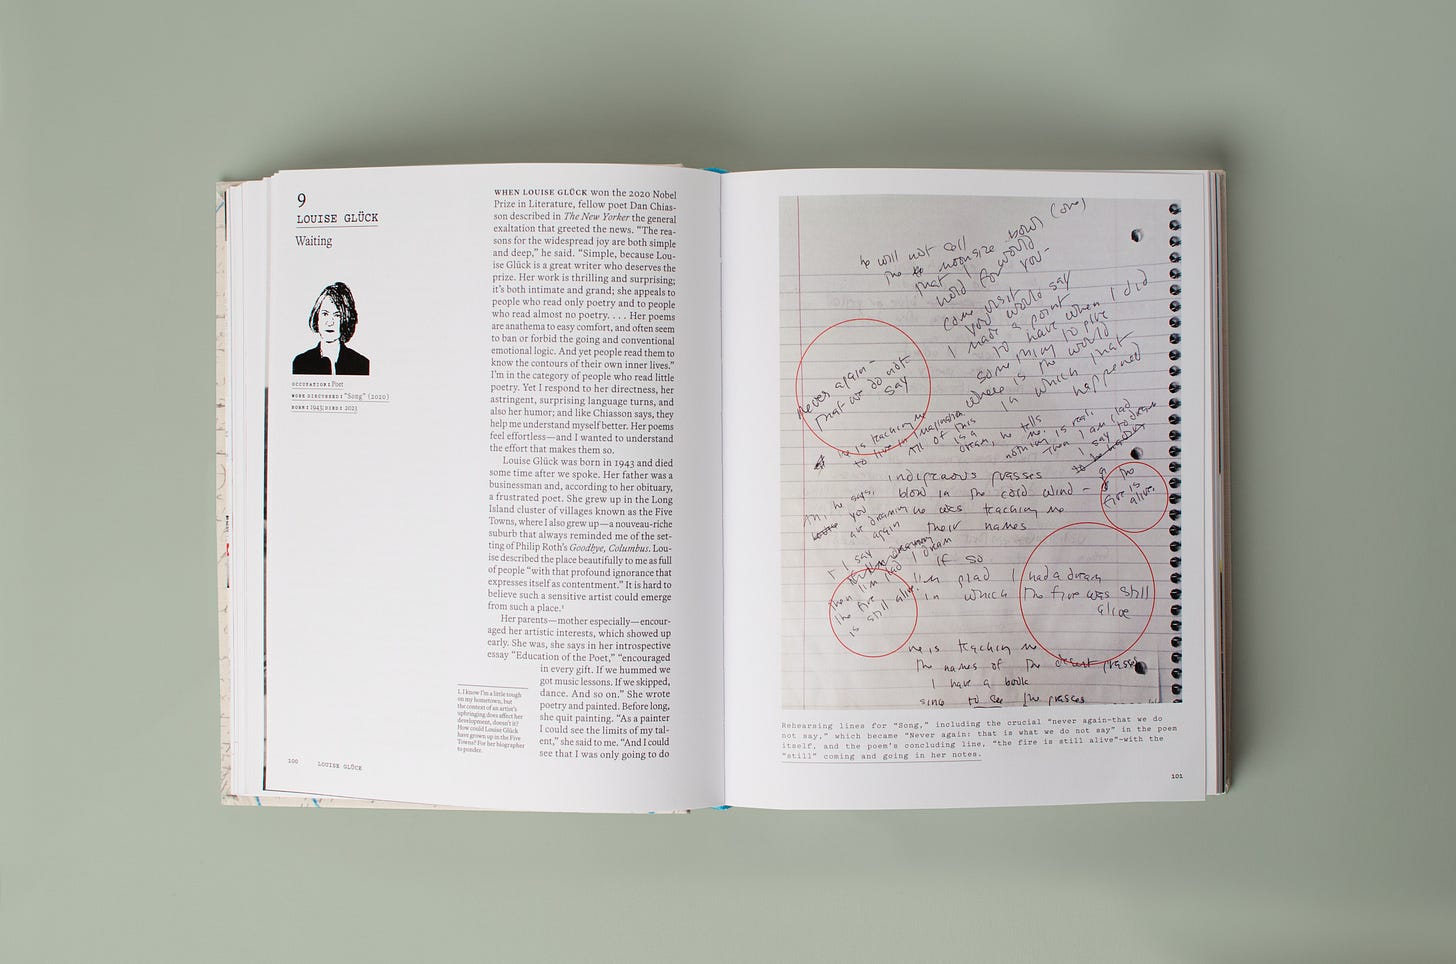 9
LOUISE GLÜCK
Waiting
OCCUPATION: Poet
WORK DISCUSSED: "Song" (2020)
BORN: 1943; DIED: 2023
WHEN LOUISE GLÜCK won the 2020 Nobel
Prize in Literature, fellow poet Dan Chias-
son described in The New Yorker the general
exaltation that greeted the news. “The rea-
sons for the widespread joy are both simple
and deep,” he said. “Simple, because Lou-
ise Glück is a great writer who deserves the
prize. Her work is thrilling and surprising;
it’s both intimate and grand; she appeals to
people who read only poetry and to people
who read almost no poetry. . . . Her poems
are anathema to easy comfort, and often seem
to ban or forbid the going and conventional
emotional logic. And yet people read them to
know the contours of their own inner lives.”
I’m in the category of people who read little
poetry. Yet I respond to her directness, her
astringent, surprising language turns, and
also her humor; and like Chiasson says, they
help me understand myself better. Her poems
feel effortless—and I wanted to understand
the effort that makes them so.
Louise Glück was born in 1943 and died
some time after we spoke. Her father was a
businessman and, according to her obituary,
a frustrated poet. She grew up in the Long
Island cluster of villages known as the Five
Towns, where I also grew up—a nouveau-riche
suburb that always reminded me of the set-
ting of Philip Roth’s Goodbye, Columbus. Lou-
ise described the place beautifully to me as full
of people “with that profound ignorance that
expresses itself as contentment.” It is hard to
believe such a sensitive artist could emerge
from such a place.¹
Her parents—mother especially—encour-
aged her artistic interests, which showed up
early. She was, she says in her introspective
essay “Education of the Poet,” “encouraged
in every gift. If we hummed we
got music lessons. If we skipped,
dance. And so on.” She wrote
poetry and painted. Before long,
she quit painting. “As a painter
I could see the limits of my tal-
ent,” she said to me. “And I could
see that I was only going to do
1. I know I’m a little tough
on my hometown, but
the context of an artist’s
upbringing does affect her
development, doesn’t it?
How could Louise Glück
have grown up in the Five
Towns? For her biographer
to ponder.
100 LOUISE GLÜCK
he will not sell
the moonsize bowl (one)
that I would
hold for you-
come visit
you would say
I made a point
to have when I did
something to give
where is the world
in which that
happened
never again-
that we do not-
say
he is teaching me
to live in imagination
All of this
is a
dream, he tells
me. nothing is real.
Then I am glad
I say to dream
indigenous grasses
blow in the cold wind-
he was teaching me
their names
the
fire is
alive.
Ah, he says,
you
are dreaming
again
I say
then I'm glad I dream
the fire
is still alive.
if so
I'm glad I had a dream
in which the fire was still
alive
he is teaching me
the names of the desert grasses
I have a book
since to see the grasses
Rehearsing lines for "Song," including the crucial "never again-that we do
not say," which became "Never again: that is what we do not say" in the poem
itself, and the poem's concluding line, "the fire is still alive"-with the
"still" coming and going in her notes.
101